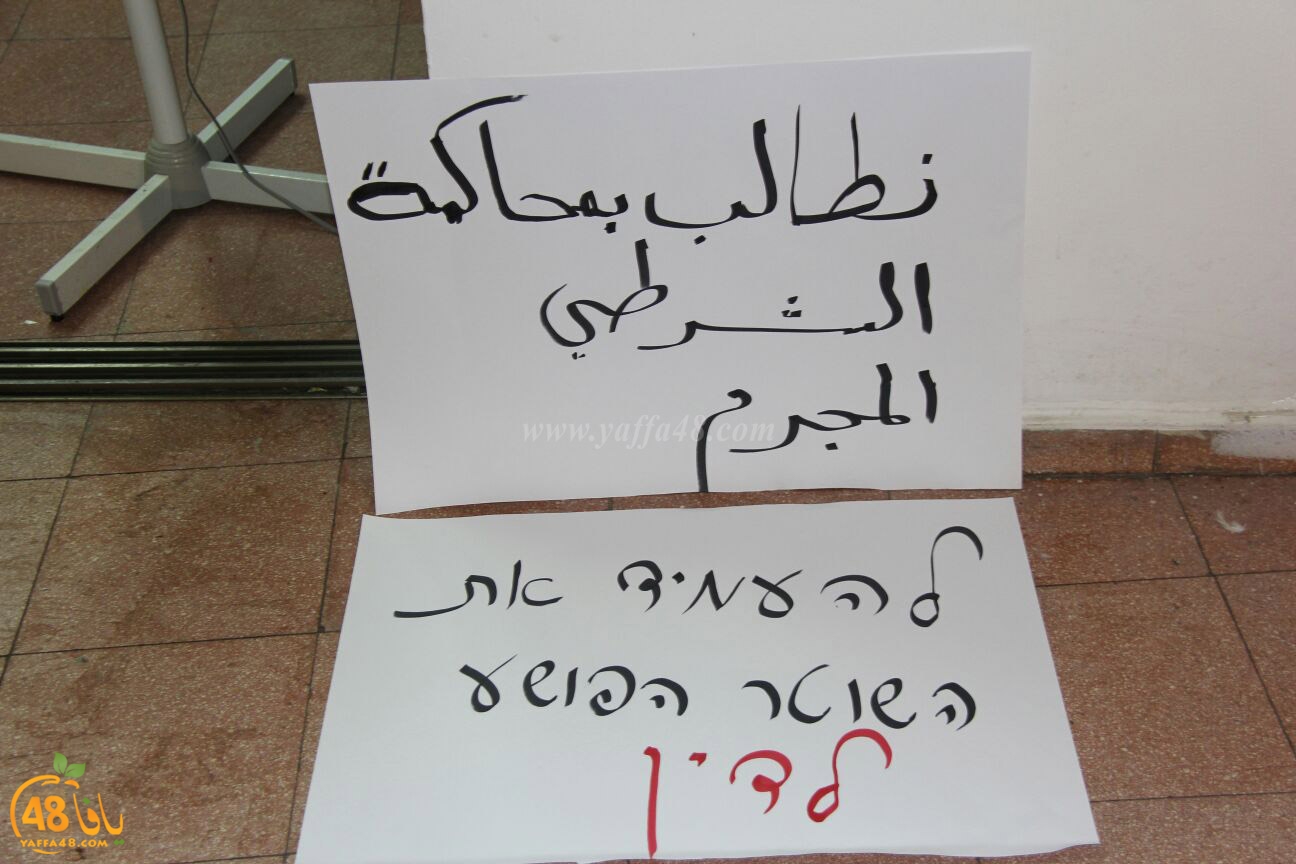 نطالب بمحاكمة
الشرطي
المجرم
www.yaffa48.com
להעמיד את
השוטר הפושע
לדין
48 يافا
YAFFA48.COM